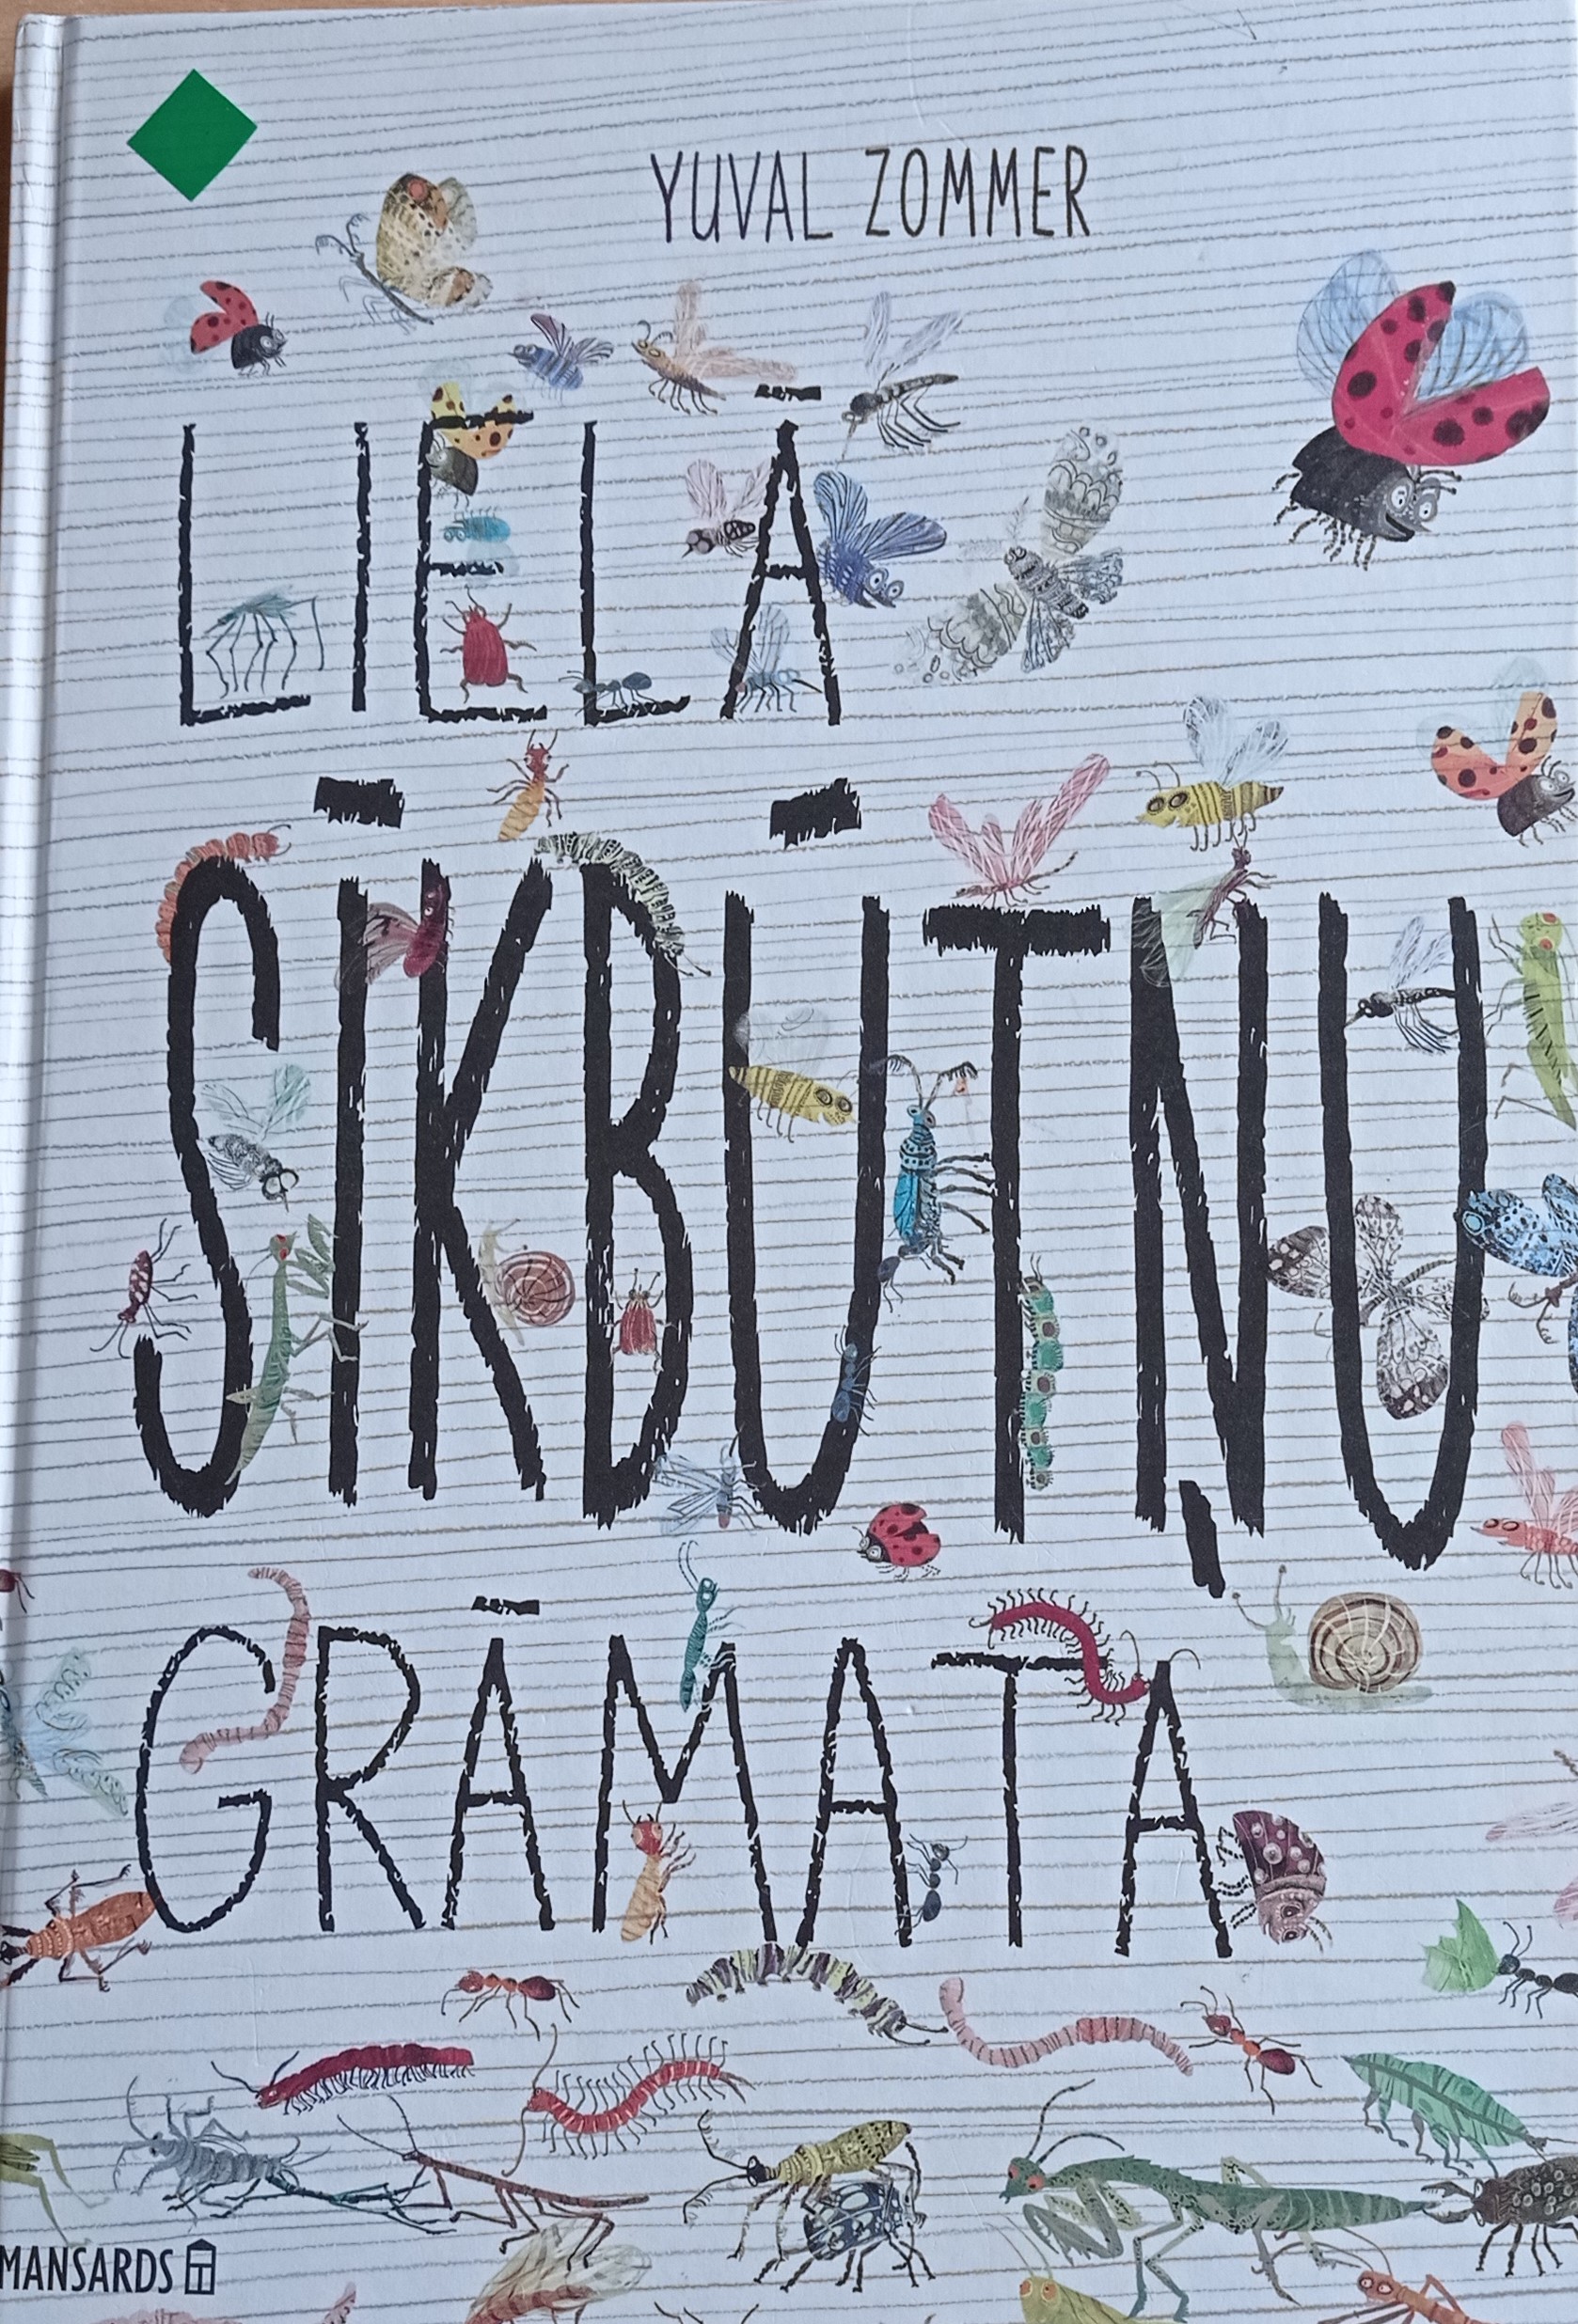 YUVAL ZOMMER
LIELĀ
SĪKBŪTŅU
GRĀMATA
MANSARDS